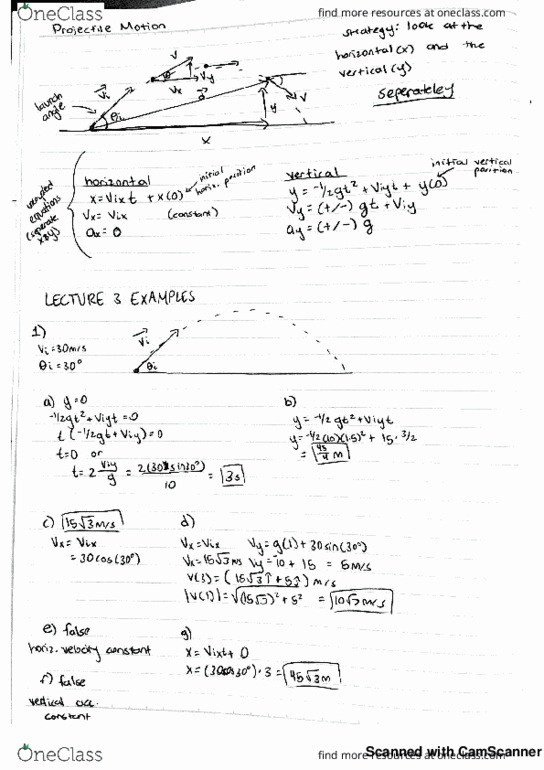 OneClass
find more resources at oneclass.com
Projectile Motion
strategy: look at the
horizontal (x) and the
vertical (y)
seperateley
launch
angle
Vi
θi
V
Vy
Vx
d
y
V
x
horizontal
x = Vixt + x(0)
initial
horiz. position
Vx = Vix (constant)
ax = 0
equations
(seperate
x & y)
vertical
y = -1/2gt² + Viyt + y(0)
initial vertical
position
Vy = (+/-) gt + Viy
ay = (+/-) g
LECTURE 3 EXAMPLES
1)
Vi = 30m/s
θi = 30°
Vi
θi
a) y = 0
-1/2gt² + Viyt = 0
t(-1/2gt + Viy) = 0
t = 0 or
t = 2 Viy/g = 2(30sin30°)/10 = 3s
b)
y = -1/2gt² + Viyt
y = -1/2(10)(1.5)² + 15 · 3/2
= 45/4 m
c) 15√3 m/s
Vx = Vix
= 30cos(30°)
d)
Vx = Vix Vy = g(1) + 30sin(30°)
Vx = 15√3 m/s Vy = -10 + 15 = 5m/s
V(3) = (15√3 î + 5ĵ) m/s
|V(1)| = √(15√3)² + 5² = 10√7 m/s
e) false
horiz. velocity constant
f) false
vertical acc.
constant
g)
x = Vixt + 0
x = (30cos30°) · 3 = 45√3 m
OneClass
find more resources at oneclass.com
Scanned with CamScanner